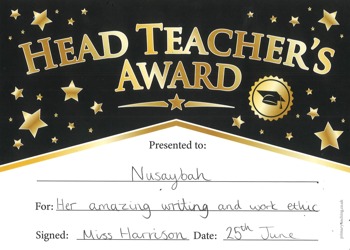 HEAD TEACHER'S
AWARD
Presented to:
Nusaybah
For: Her amazing writing and work ethic
Signed: Miss Harrison Date: 25th June